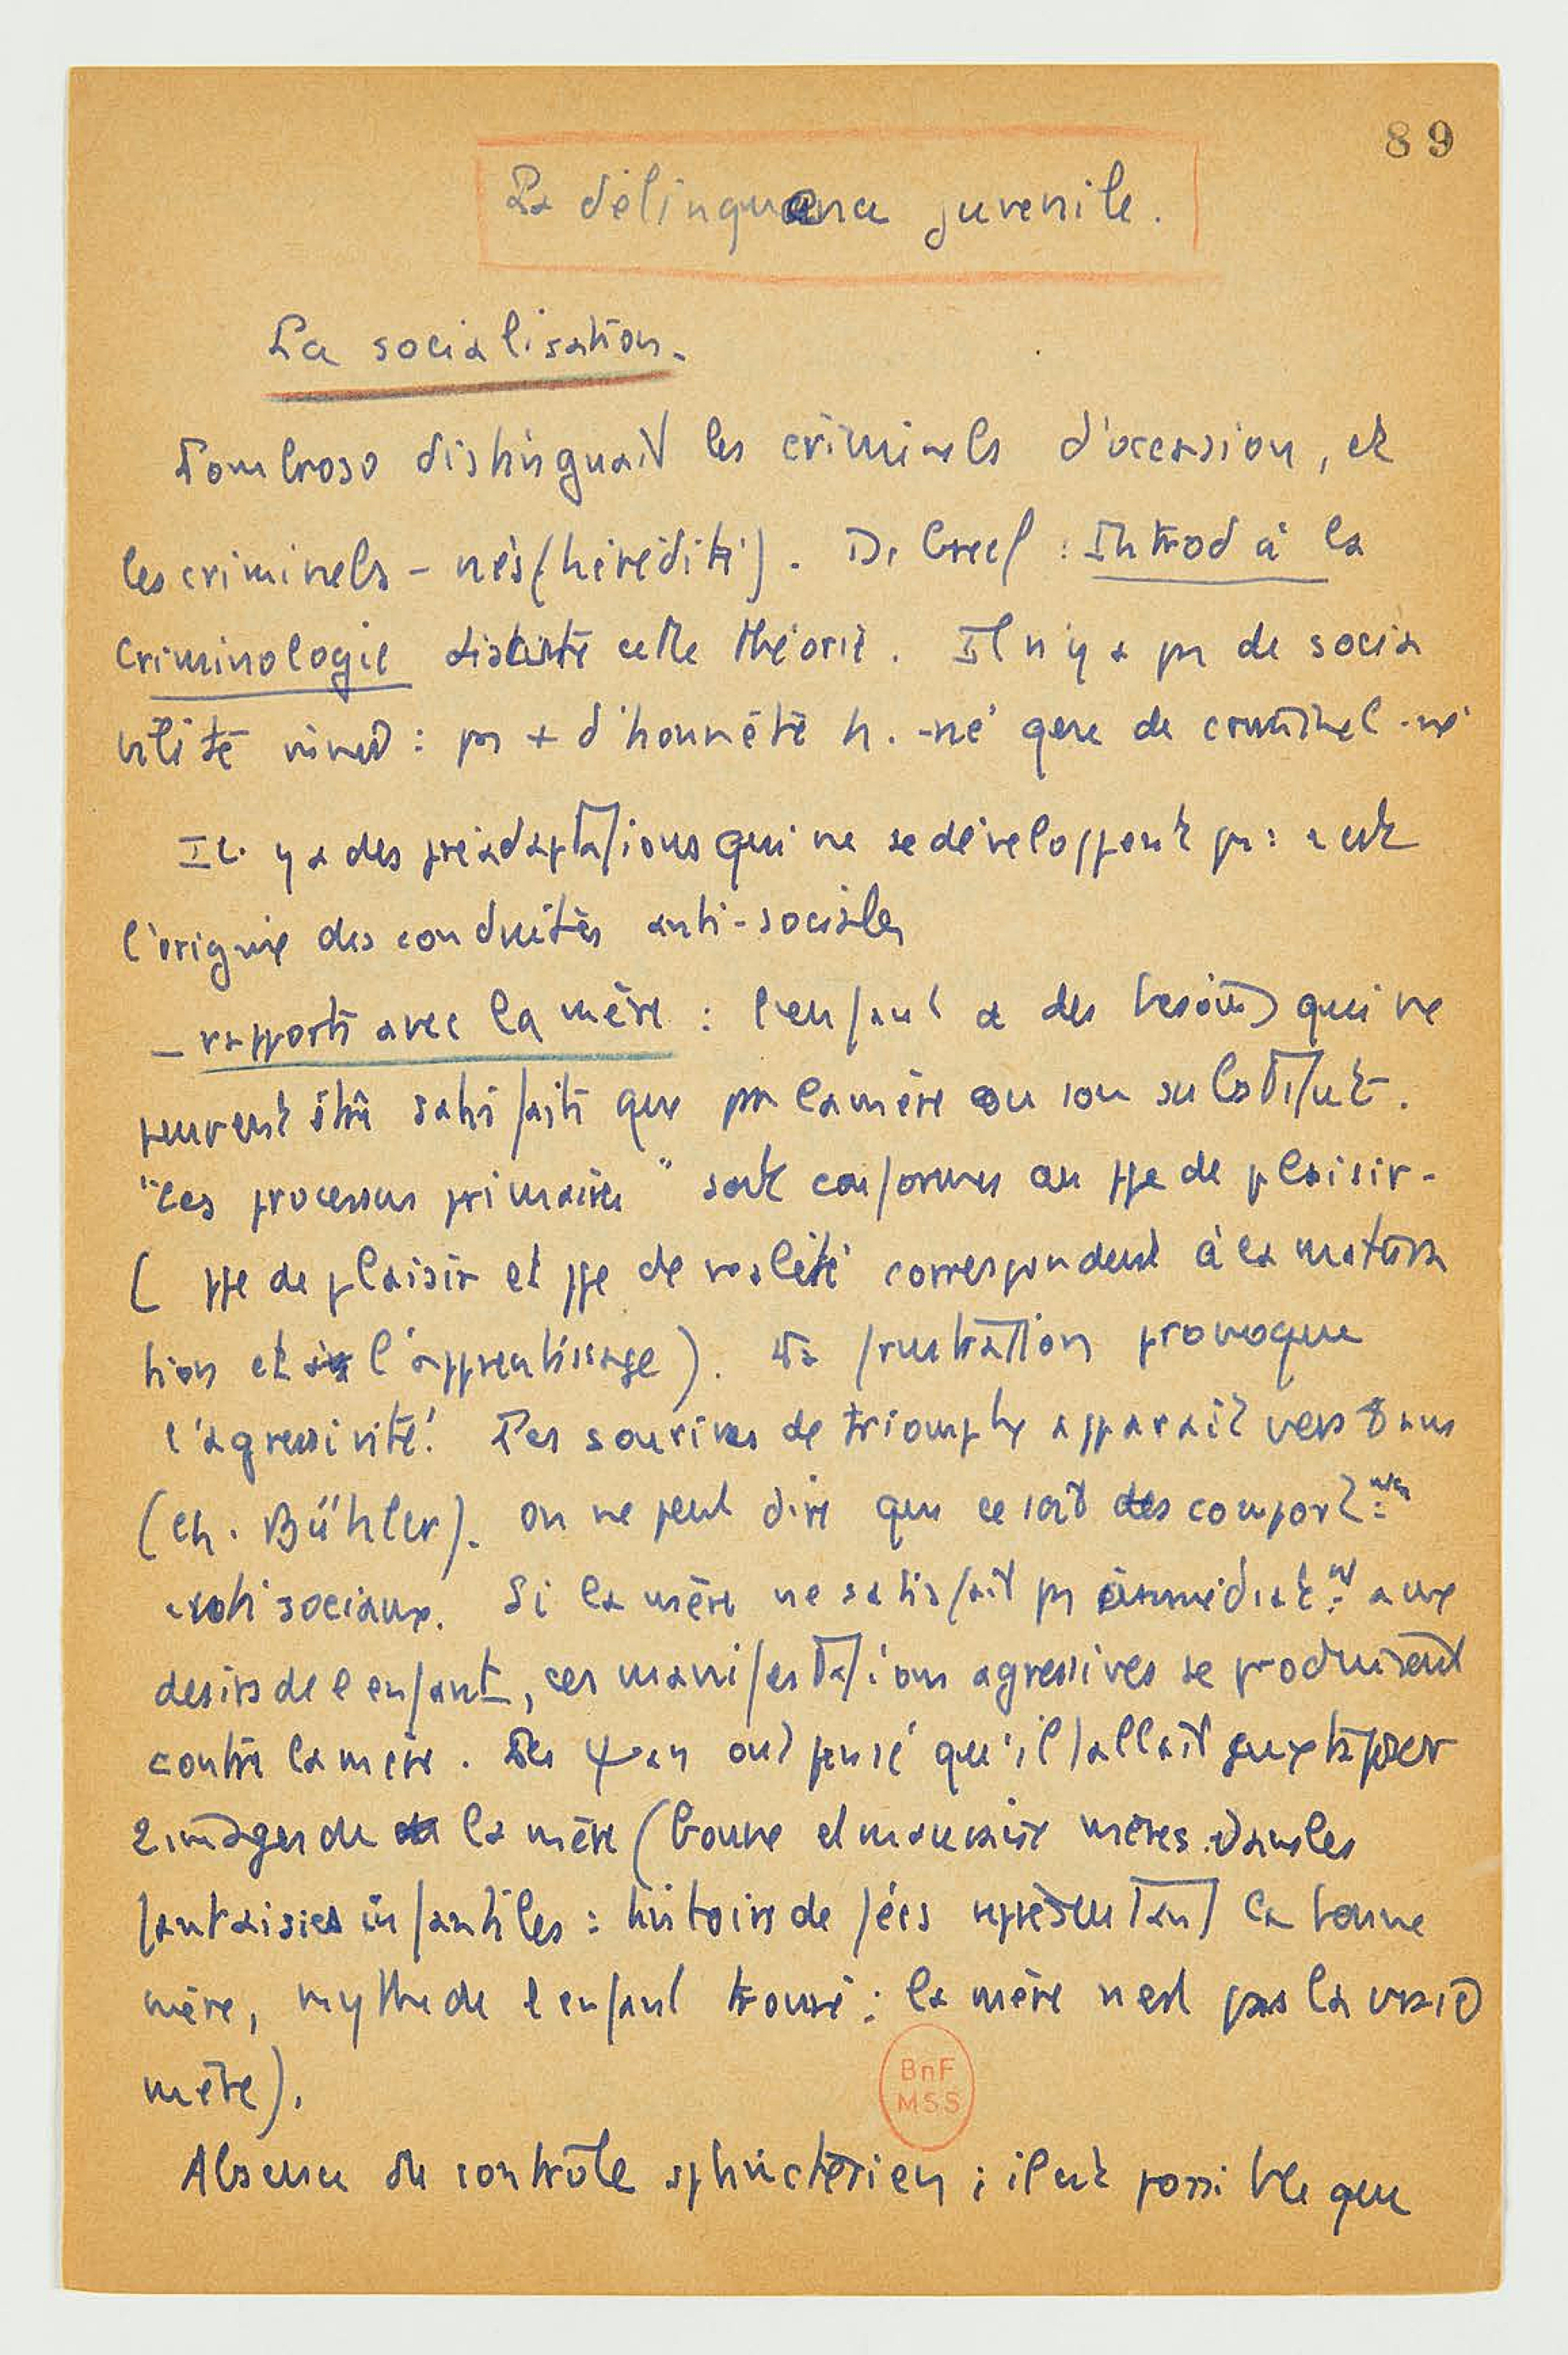 89
La délinquance juvenile.
La socialisation.
Lombroso distinguait les criminels d'occasion, et
les criminels-nés (hérédité). De Greef : Introd à la
Criminologie discute cette théorie. Il n'y a pas de socia
bilité innée : pas + d'honnête h.-né que de criminel-né
Il y a des préadaptations qui ne se développent pas : c'est
l'origine des conduites anti-sociales
– rapports avec la mère : l'enfant a des besoins qui ne
peuvent être satisfaits que par la mère ou son substitut.
"Les processus primaires" sont conformes au ppe de plaisir.
( ppe de plaisir et ppe de réalité correspondent à la matura
tion et à l'apprentissage). La frustration provoque
l'agressivité. Les sourires de triomphe apparait vers 8 ans
(Ch. Bühler). On ne peut dire que ce soit des comport.
anti sociaux. Si la mère ne satisfait pas immédiat.nt aux
desirs de l'enfant, ces manifestations agressives se produisent
contre la mère. Des ψan ont pensé qu'il fallait juxtaposer
2 images de la mère (bonne et mauvaise mères. Dans les
fantaisies infantiles : histoire de fées représentant la bonne
mère, mythe de l'enfant trouvé : la mère n'est pas la vraie
mère).
BnF
MSS
Absence du contrôle sphinctérien ; il est possible que